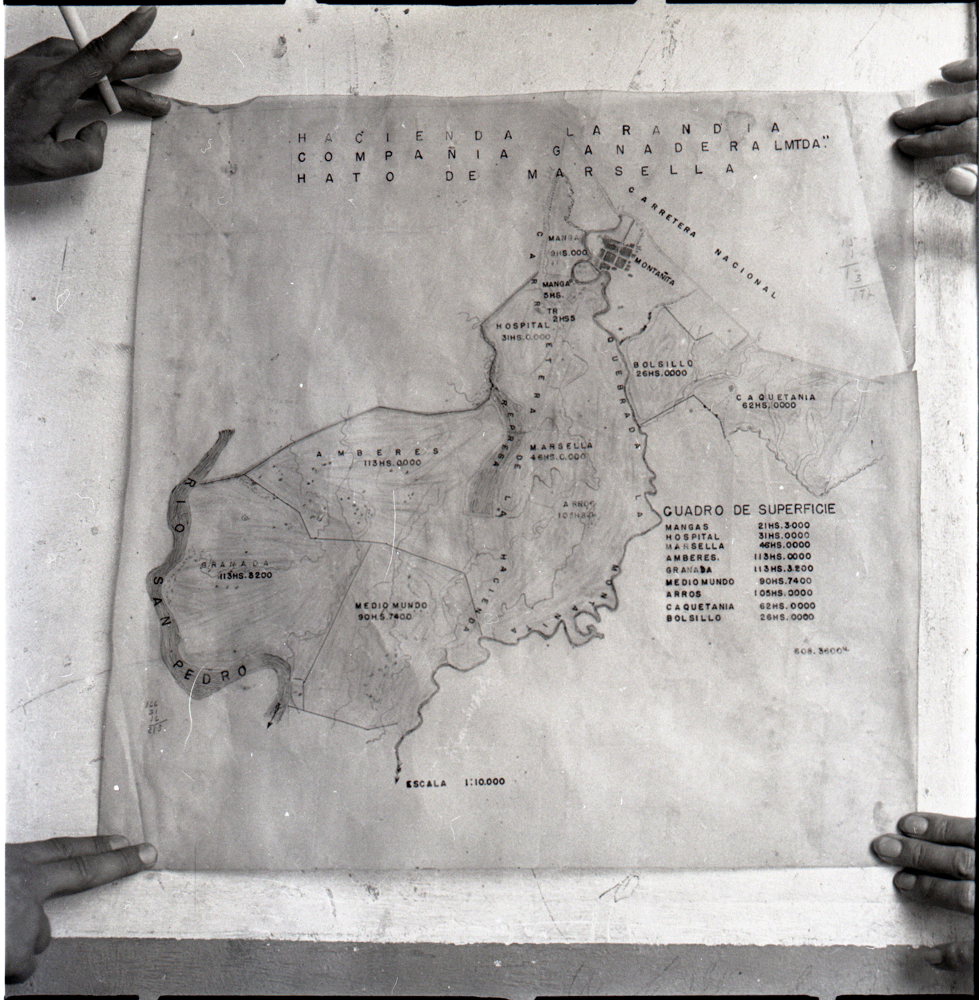 HACIENDA LARANDIA
COMPAÑIA GANADERA LMTDA."
HATO DE MARSELLA
CARRETERA NACIONAL
CARRETERA
MANGA
9HS.000
MONTAÑITA
MANGA
5HS.
TR
2HS5
HOSPITAL
31HS.0.000
LA QUEBRADA LA MONTAÑITA
BOLSILLO
26HS.0000
CAQUETANIA
62HS.0000
REPRESA DE LA HACIENDA
AMBERES
113HS.0000
MARSELLA
46HS.0.000
ARROS
RIO SAN PEDRO
GRANADA
113HS.3200
MEDIO MUNDO
90HS.7400
CUADRO DE SUPERFICIE
MANGAS 21HS.3000
HOSPITAL 31HS.0000
MARSELLA 46HS.0000
AMBERES. 113HS.0000
GRANADA 113HS.3.200
MEDIO MUNDO 90HS.7400
ARROS 105HS.0000
CAQUETANIA 62HS.0000
BOLSILLO 26HS.0000
608.3600
ESCALA 1:10.000